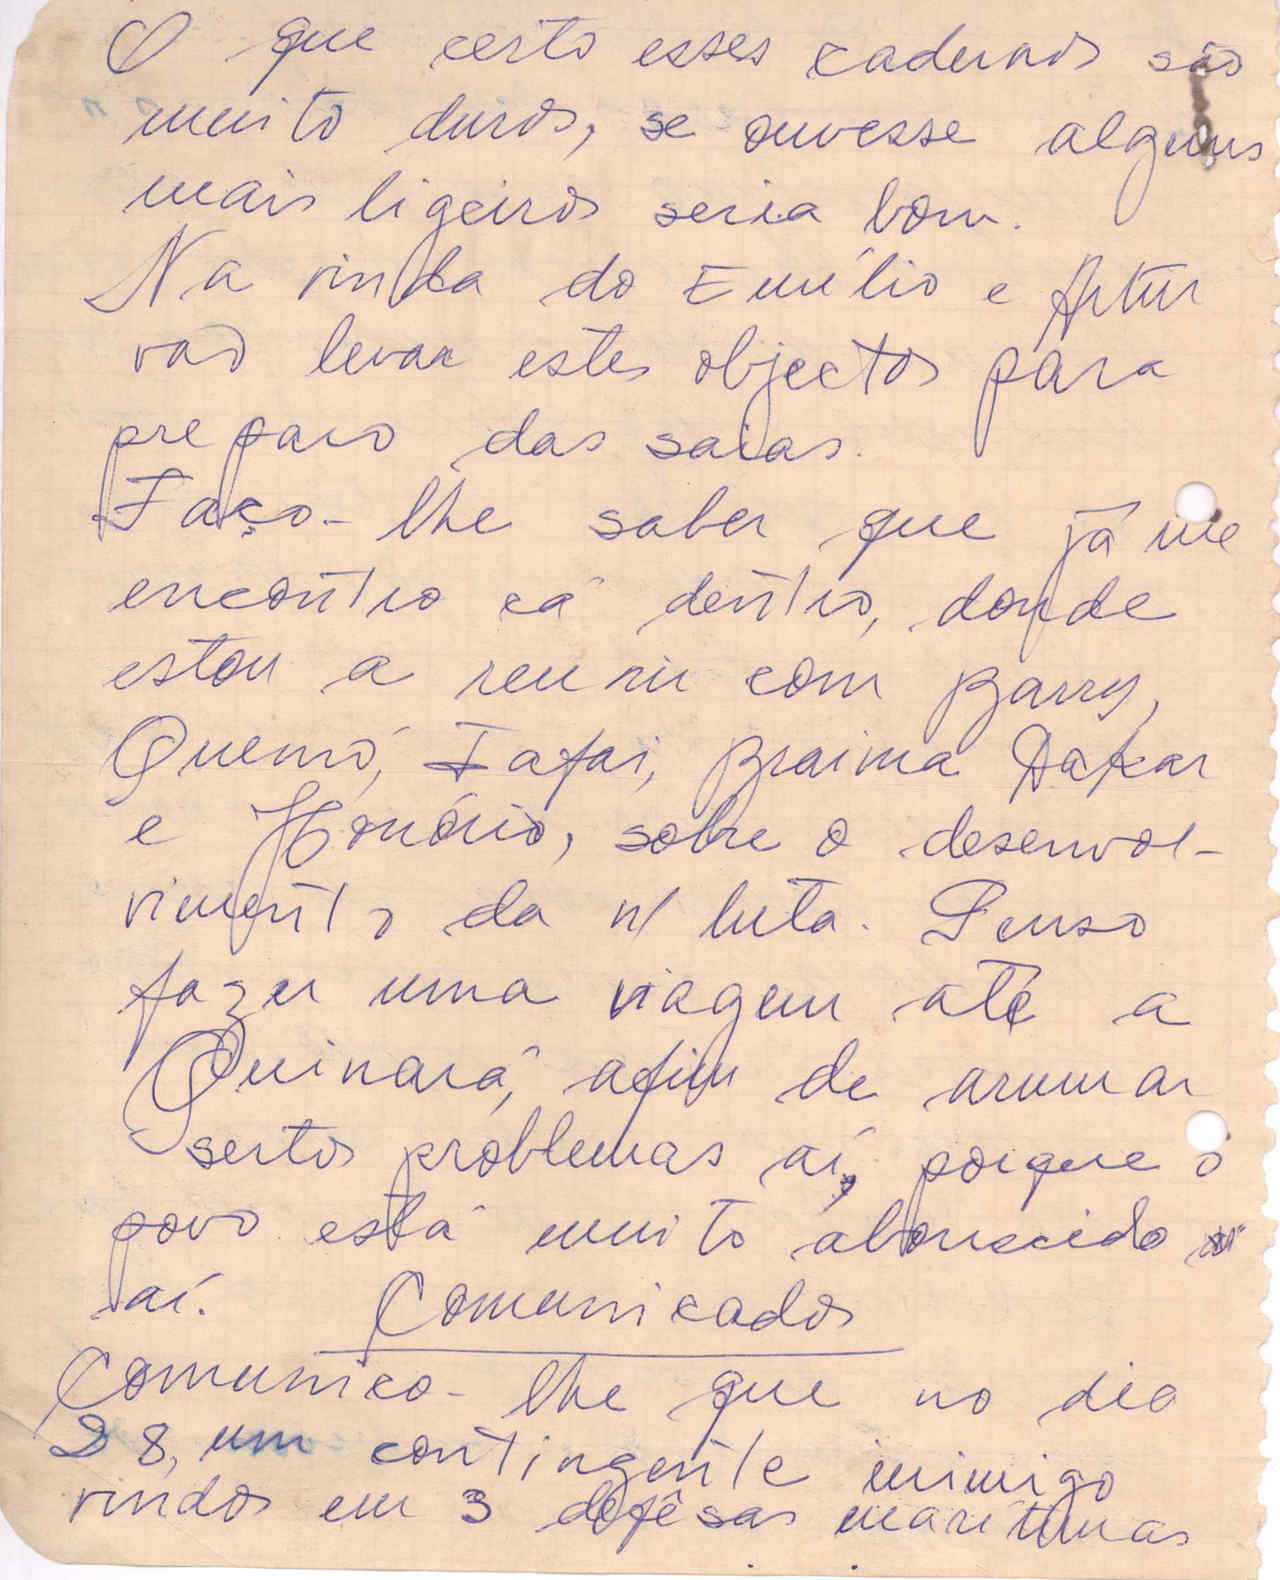 O que certo esses cadernos são
muito duros, se ouvesse alguns
mais ligeiros seria bom.
Na vinda do Emílio e Artur
vão levar estes objectos para
preparo das saias.
Faço-lhe saber que já me
encontro cá dentro, donde
estou a reunir com Barry,
Quemó, Fafai, Braima Dakar
e Honório, sobre o desenvol-
vimento da n/ luta. Penso
fazer uma viagem até a
Quinará, afim de arumar
sertos problemas aí, porque o
povo está muito aborrecido
aí. Comunicados
Comunico-lhe que no dia
28, um contingente inimigo
vindos em 3 defêsas marítimas